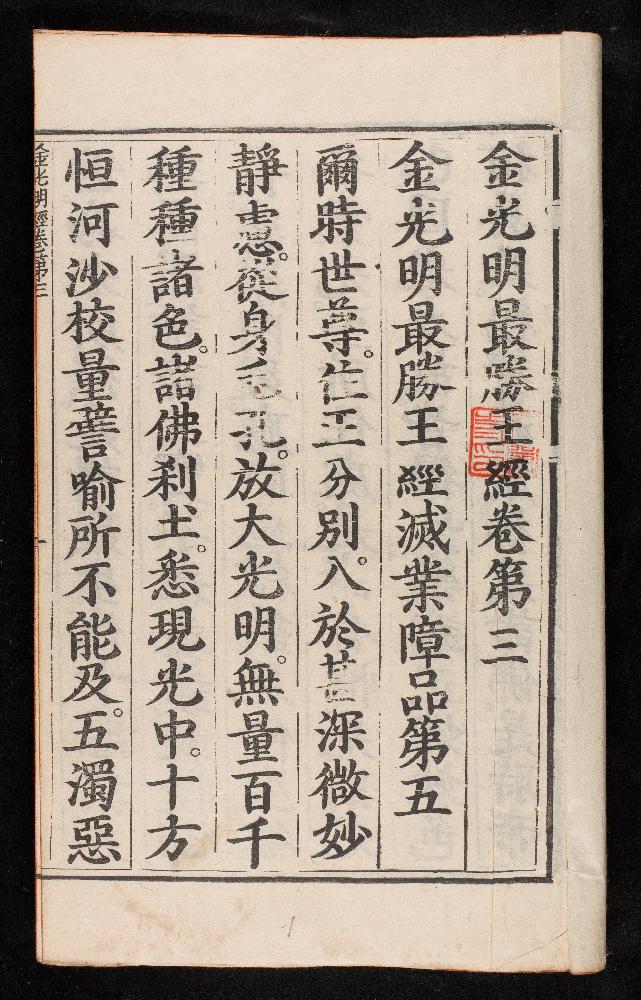 金光明最勝王經卷第三
金光明最勝王經滅業障品第五
爾時世尊。住正分別。入於甚深微妙
靜慮。從身毛孔。放大光明。無量百千
種種諸色。諸佛刹土。悉現光中。十方
恒河沙校量譬喻所不能及。五濁惡
金光明經卷第三
一
1